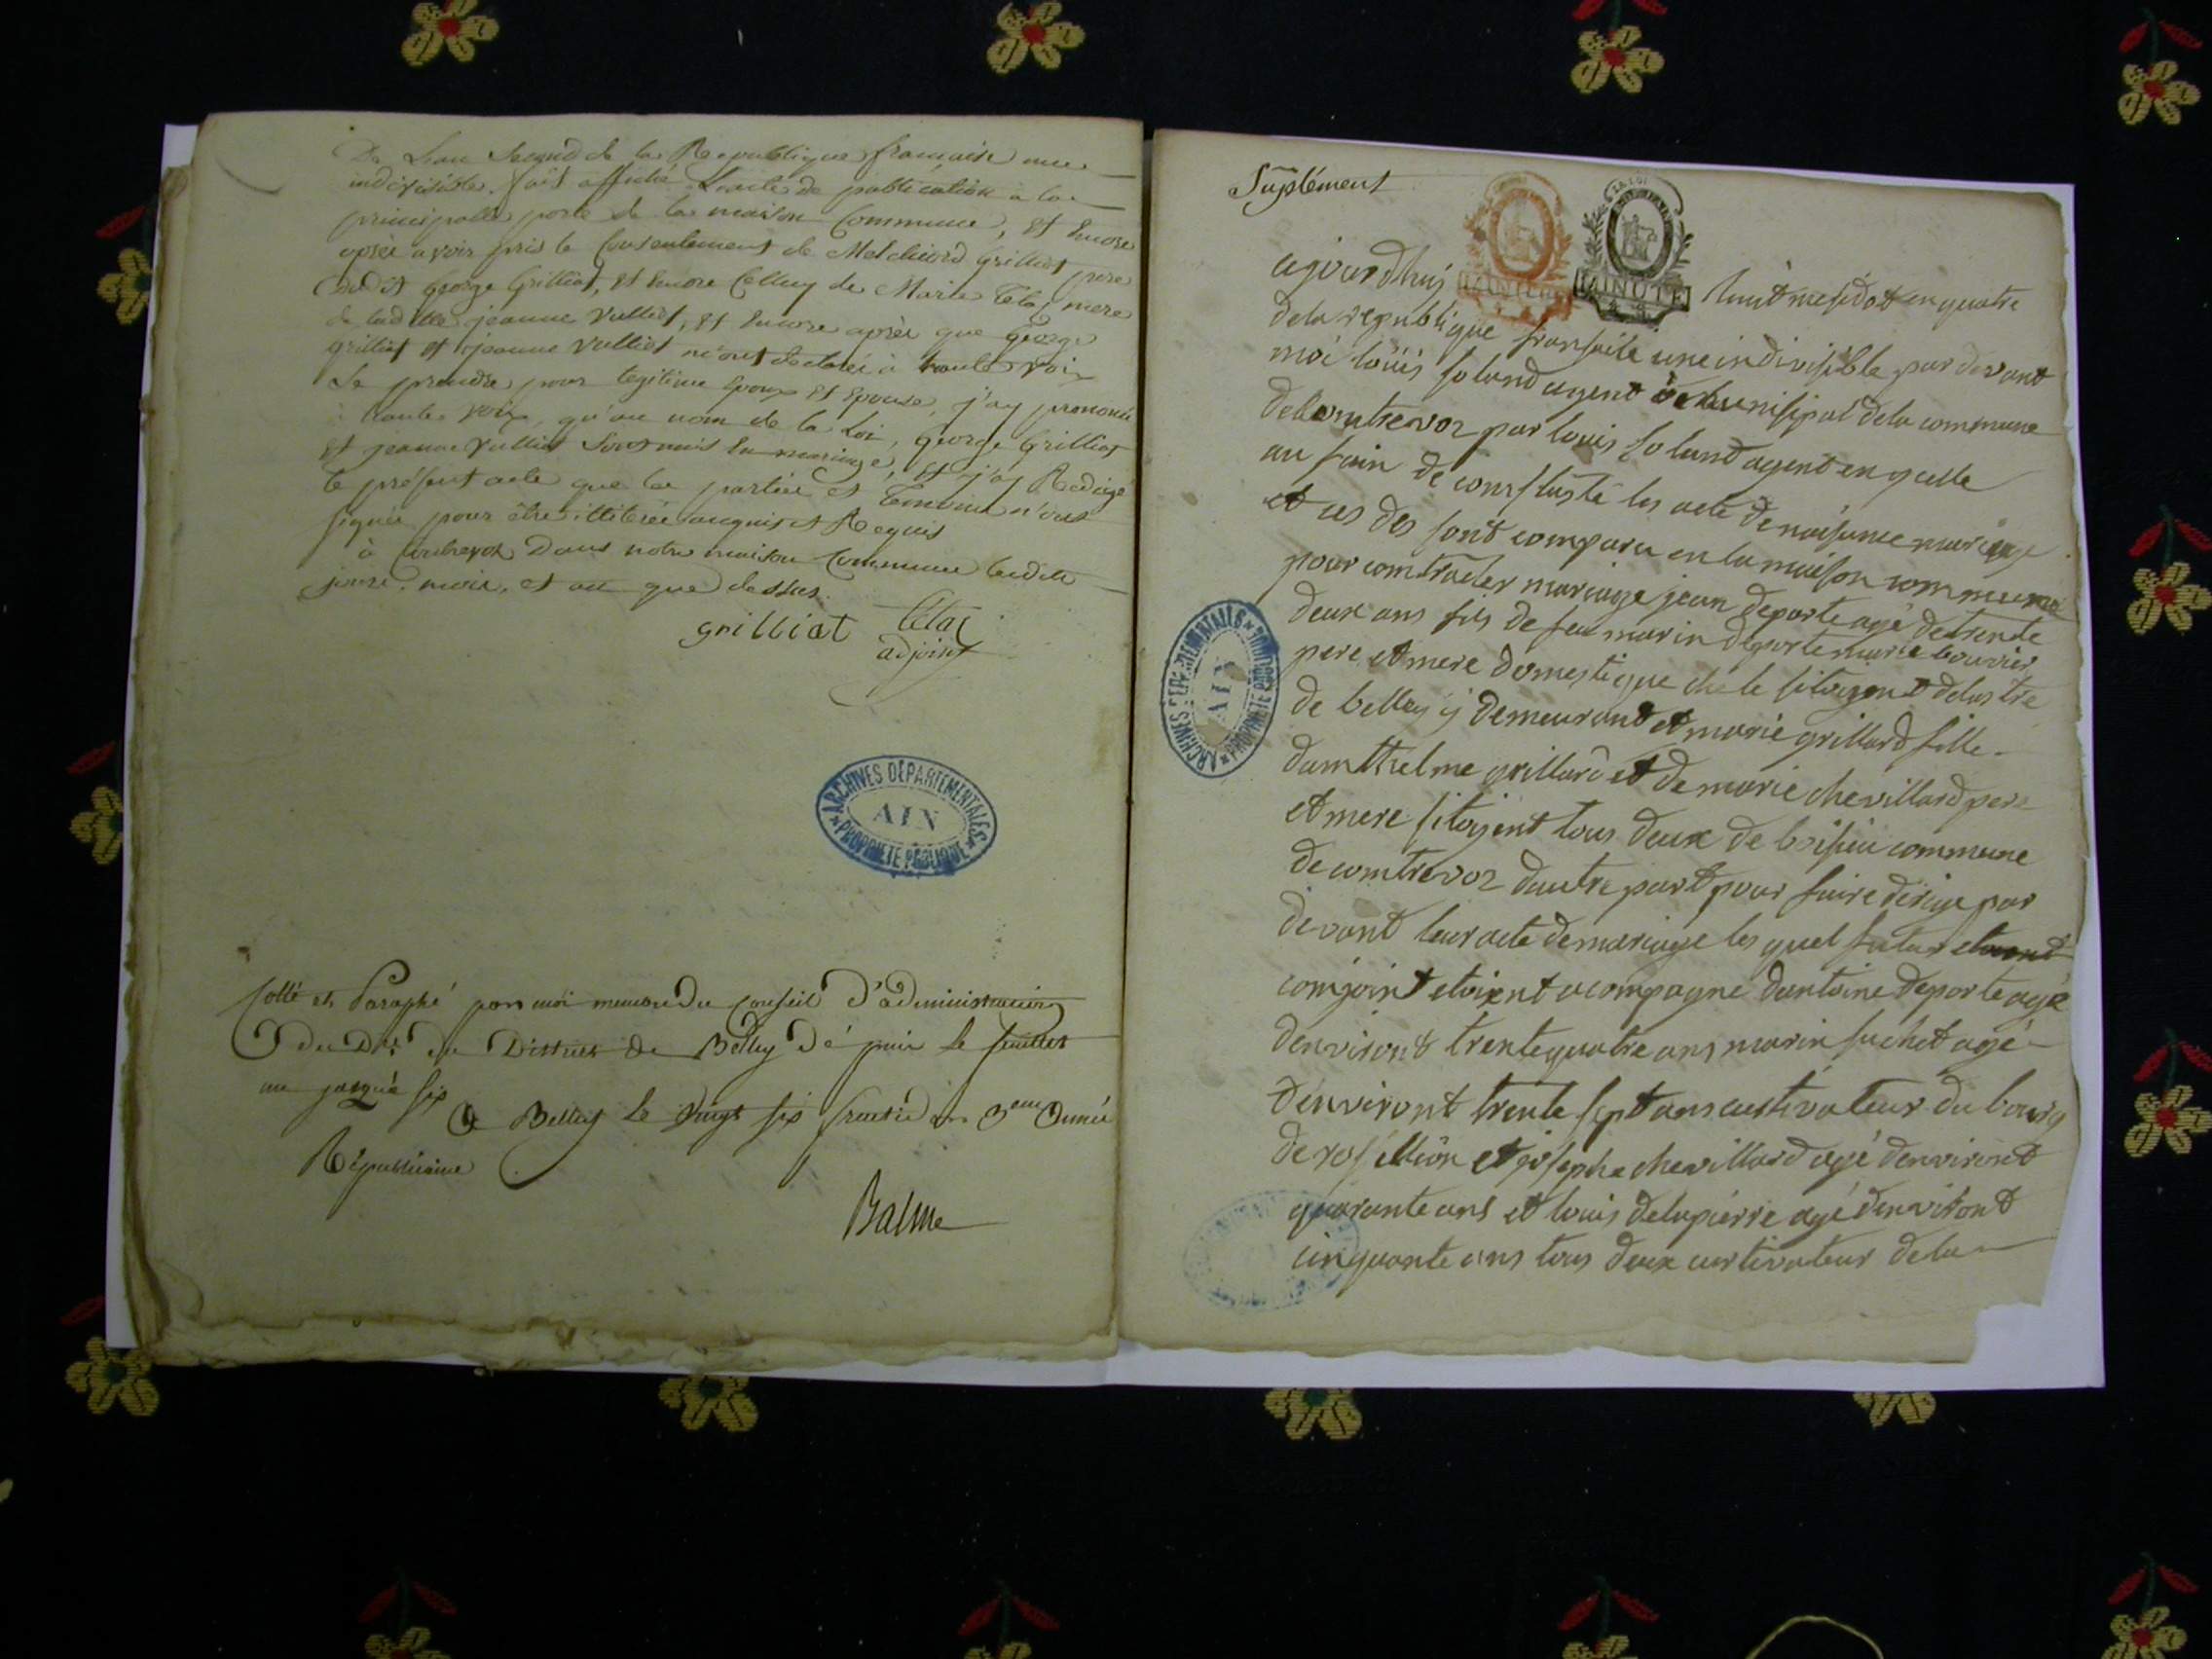 De Lan Second de la Republique francaise une
indivisible. fait affiché Lacte de publication à la
principalle porte de la maison Commune, et Encore
apres avoir pris le Consentement de Melchiord grilliat pere
dudit George Grilliat, et Encore Celluy de Marie Tetaz mere
de laditte jeanne Vulliet, et Encore après que George
grilliat et jeanne Vulliet m'ont declaré à haute voix
Se prendre pour legitime Epoux et Epouse, j'ay prononcé
à haute voix, qu'au nom de la Loi, George Grilliat
et jeanne Vulliet Sont unis En mariage, et j'ay Redigé
le présent acte que les parties et temoins n'ont
signés pour être illiterés enquis et Requis
à Contrevoz Dans notre maison Commune ledit
jour, mois, et an que dessus.
grilliat Tetaz
adjoint
Cotté et Paraphé par moi membre du Conseil d'administration
du District de Belley dé puis le feuillet
un jusqu'à six
à Belley le vingt six an 3eme Année
Républicaine
Balme
Suplément
ajourdhuy huit mesidot en quatre
LA LOI
MINUTE
dela republique fransaise une indivisible par devant
moi loüis soland agent munisipal dela commune
de comtrevoz par louis soland agent en qualle
au fain de consstasté les acte de naisance mariage
et ces des sont comparu en la maison commune
pour comtracter mariage jean deporte agé de trente
deux ans fils de feu marin deporte marie bouvier
pere et mere domestique ché le sitoyent delastre
de belley y demeurant et marie grillard fille
damthelme grillard et de marie chevillard pere
et mere sitoyent tous deux de boisieu commune
de comtrevoz dautre part pour faire dérige par
devant leur acte de mariage les quel futur etoient
comjoint etoient acompagne dantoine deporte agé
denviront trente quatre ans marin suchet agé
denviront trente sept ans custivateur du bourg
de rosellion et josephe chevillard agé denviront
quarante ans et louis delapierre agé denviront
cinquante ans tous deux curtivateur de la
ARCHIVES DÉPARTEMENTALES
AIN
PROPRIÉTÉ PUBLIQUE
ARCHIVES DÉPARTEMENTALES
AIN
PROPRIÉTÉ PUBLIQUE